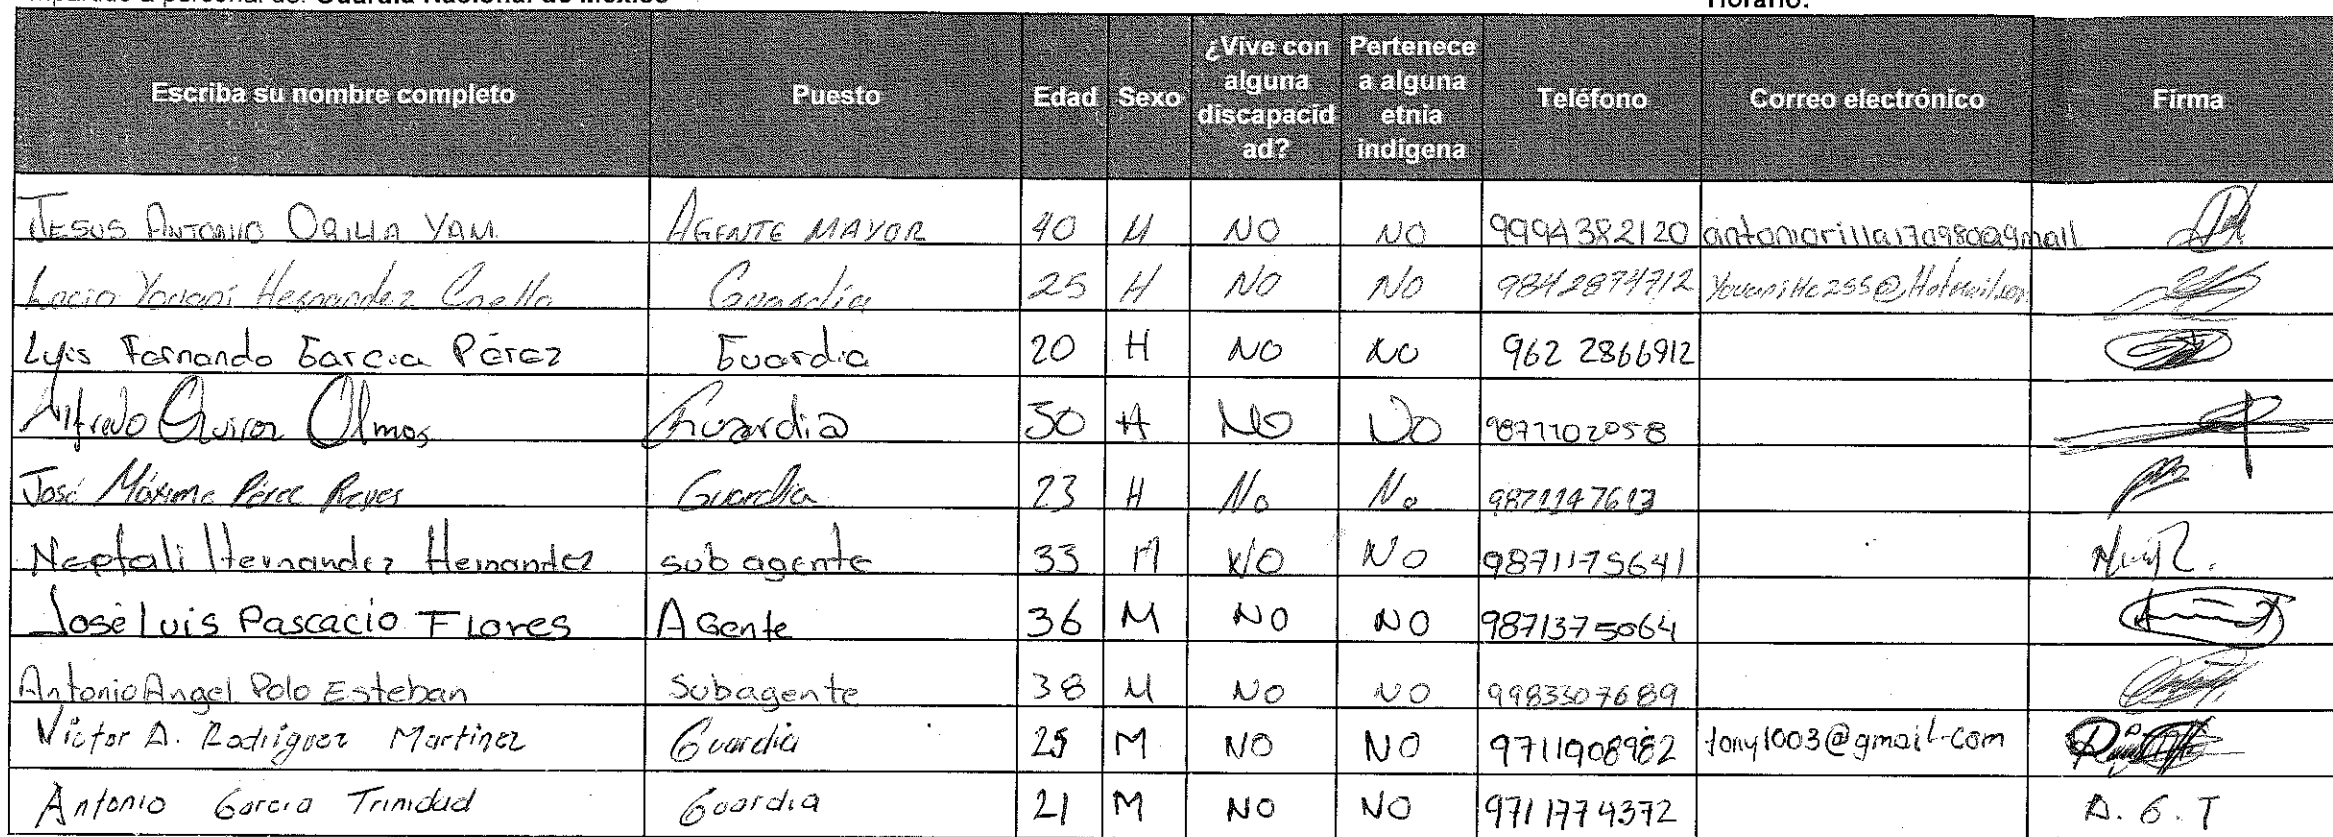 a personal de: Guardia Nacional de México Horario:
Escriba su nombre completo Puesto Edad Sexo ¿Vive con alguna discapacidad? Pertenece a alguna etnia indígena Teléfono Correo electrónico Firma
JESUS ANTONIO ORILLA YAM AGENTE MAYOR 40 M NO NO 9994382120 antoniorilla170980@gmail
Yovani Hernandez Coello Guardia 25 H NO NO 9842874712
Luis Fernando Garcia Pérez Guardia 20 H NO NO 962 2866912
Alfredo Quiroz Olmos Guardia 30 H NO NO 9877102058
José Máximo Pérez Reyes Guardia 23 H No No 9871147613
Neptali Hernandez Hernandez subagente 33 M NO NO 9871175641
José Luis Pascacio Flores AGente 36 M NO NO 9871375064
Antonio Angel Polo Esteban Subagente 38 M NO NO 9983307689
Victor A. Rodriguez Martinez Guardia 25 M NO NO 9711908982 tony1003@gmail.com
Antonio Garcia Trinidad Guardia 21 M NO NO 9711774372 A. G. T